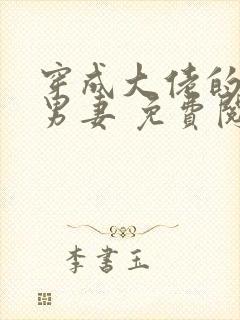 穿成大佬的
男妻 免費閱
李書玉